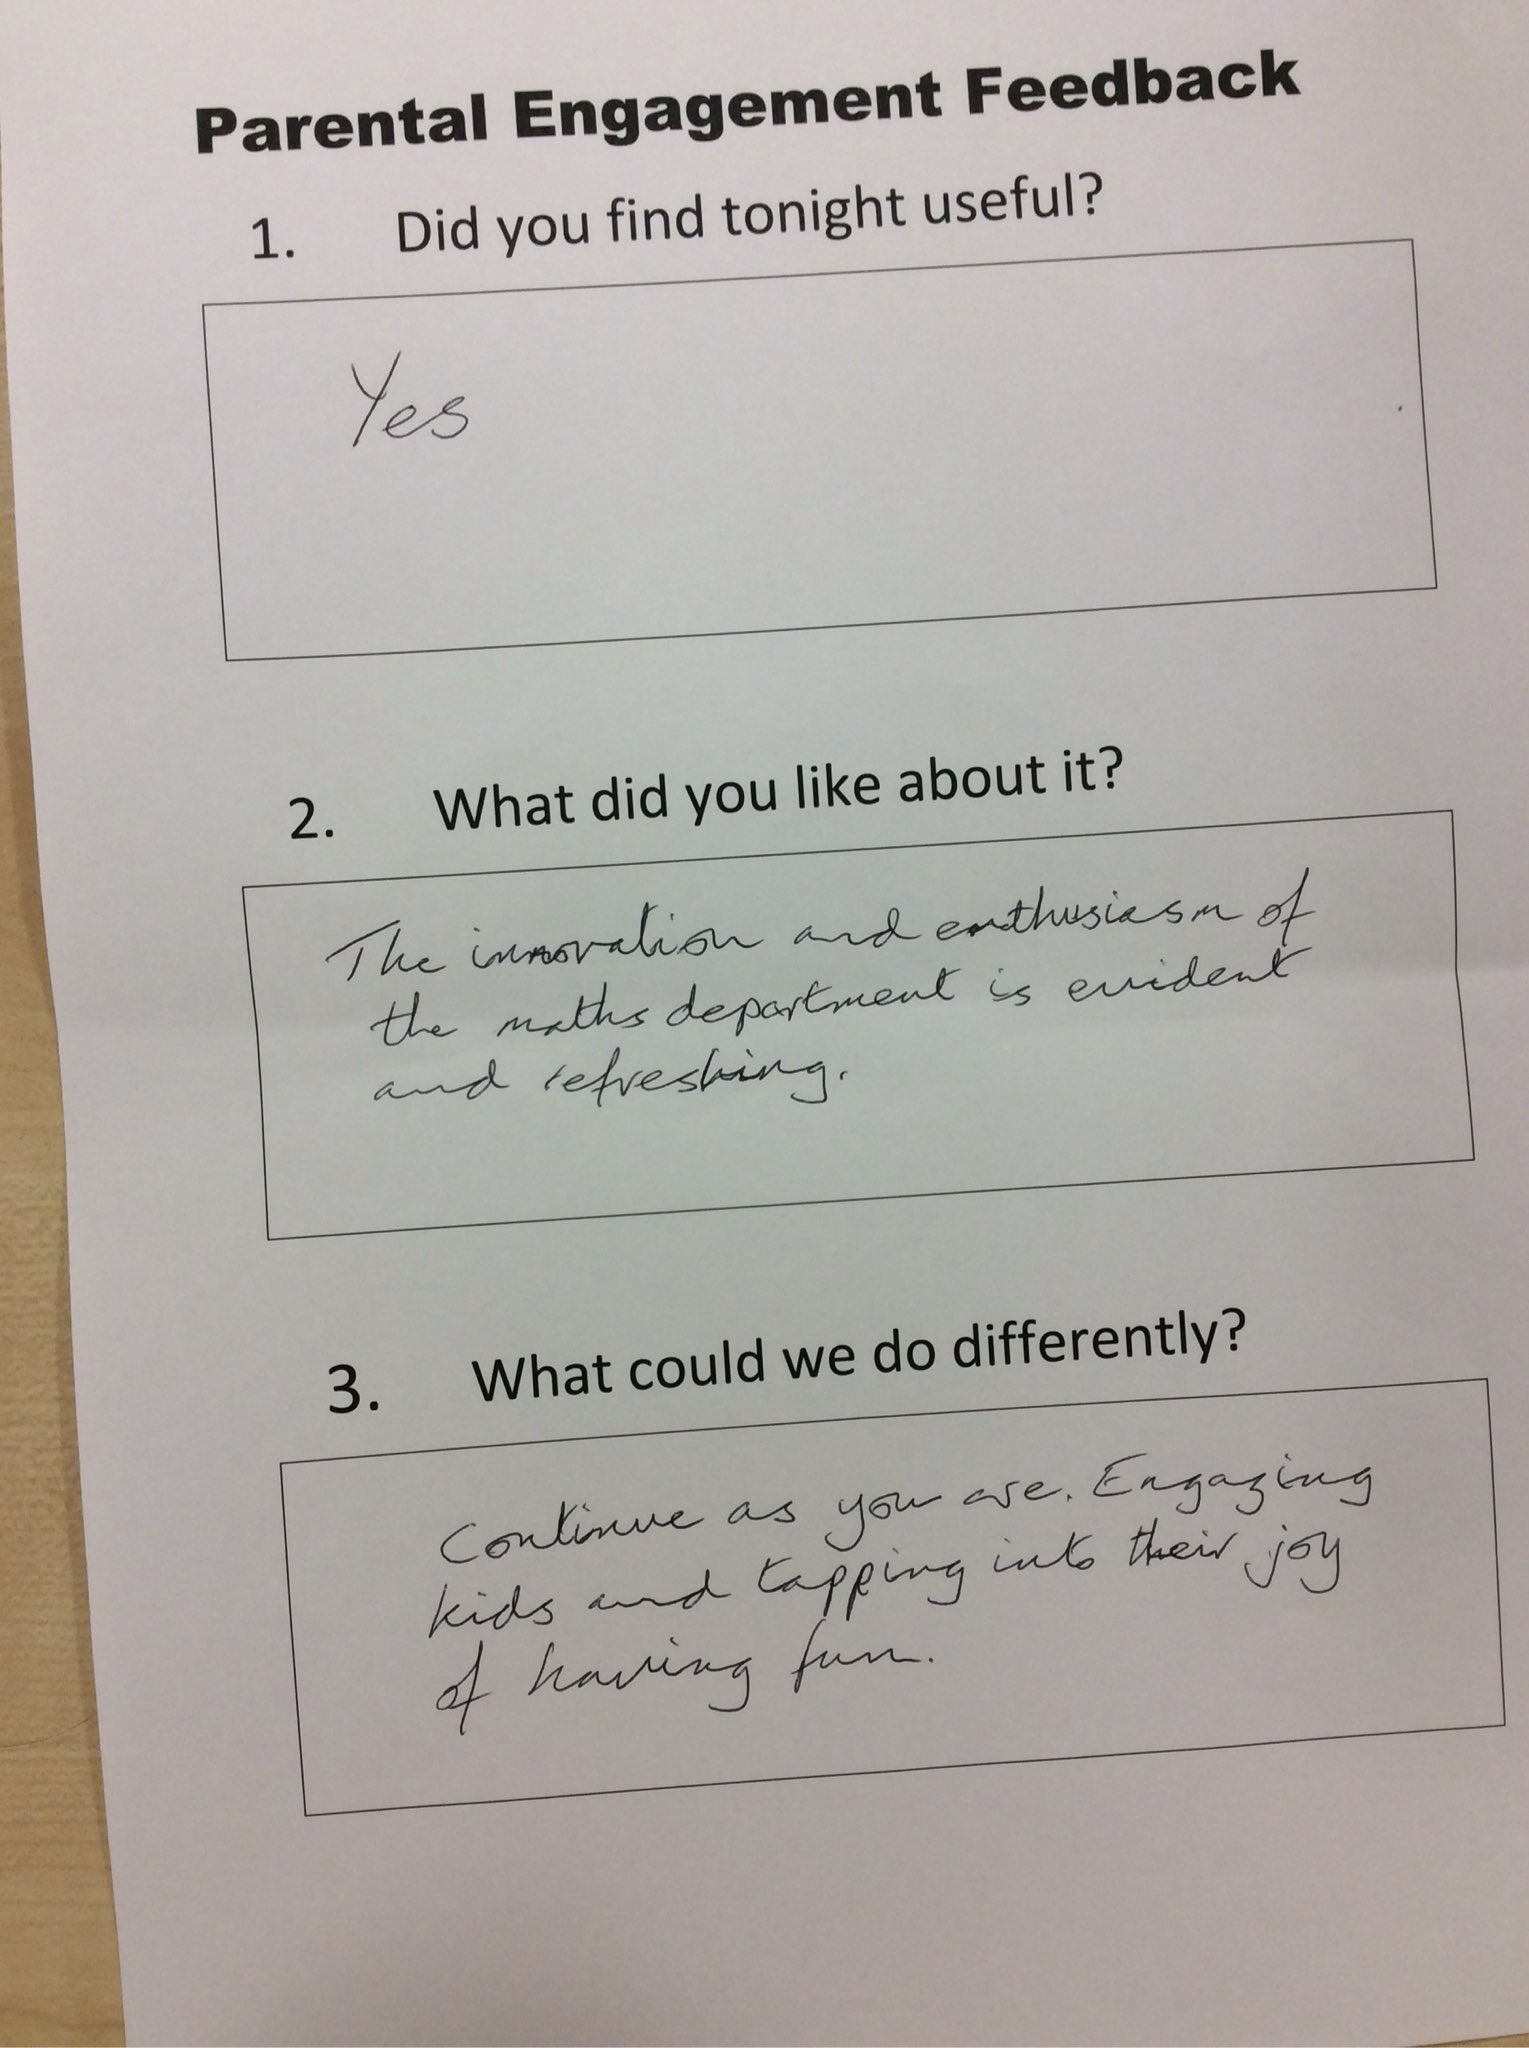 Parental Engagement Feedback
1. Did you find tonight useful?
Yes
2. What did you like about it?
The innovation and enthusiasm of
the maths department is evident
and refreshing.
3. What could we do differently?
Continue as you are. Engaging
kids and tapping into their joy
of having fun.